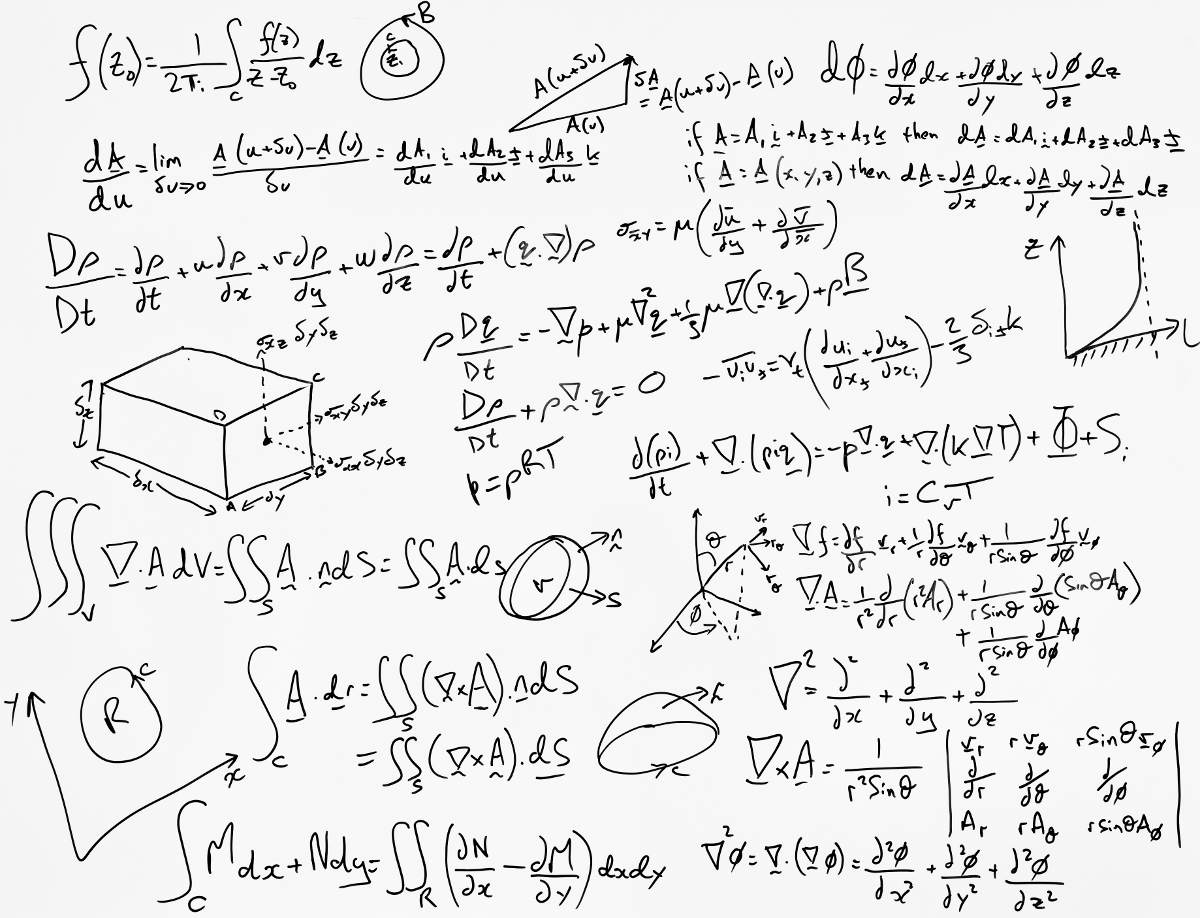 f(z₀) = 1/2πi ∫_c f(z)/z-z₀ dz
B
c
zᵢ
A(u+δu)
δA = A(u+δu) - A(u)
A(u)
dφ = ∂φ/∂x dx + ∂φ/∂y dy + ∂φ/∂z dz
dA/du = lim δu→0 A(u+δu) - A(u)/δu = dA₁/du i + dA₂/du j + dA₃/du k
if A = A₁i + A₂j + A₃k then dA = dA₁i + dA₂j + dA₃j
if A = A(x,y,z) then dA = ∂A/∂x dx + ∂A/∂y dy + ∂A/∂z dz
Dρ/Dt = ∂ρ/∂t + u∂ρ/∂x + v∂ρ/∂y + w∂ρ/∂z = ∂ρ/∂t + (q·∇)ρ
σxy = μ(∂ū/∂y + ∂v̄/∂x)
z
U
ρDq/Dt = -∇p + μ∇²q + 1/3 μ∇(∇·q) + ρB
-vᵢvⱼ = νt(∂uᵢ/∂xⱼ + ∂uⱼ/∂xᵢ) - 2/3 δᵢⱼk
Dρ/Dt + ρ∇·q = 0
p = ρRT
σxz δyδz
C
D
σxy δyδz
σxx δyδz
B
A
δz
δx
δy
∂(ρi)/∂t + ∇·(ρiq) = -p∇·q + ∇·(k∇T) + Φ + Sᵢ
i = CvT
∭_V ∇·A dV = ∬_S A·n dS = ∬_S A·ds
n̂
v
S
θ
r
vr
vθ
φ
∇f = ∂f/∂r vr + 1/r ∂f/∂θ vθ + 1/rSinθ ∂f/∂φ vφ
∇·A = 1/r² ∂/∂r (r²Ar) + 1/rSinθ ∂/∂θ (SinθAθ)
+ 1/rSinθ ∂/∂φ Aφ
Y
R
c
x
∫_C A·dr = ∬_S (∇×A)·n dS
= ∬_S (∇×A)·dS
n̂
c
∇² = ∂²/∂x + ∂²/∂y + ∂²/∂z
∇×A = 1/r²Sinθ | vr rvθ rSinθvφ
∂/∂r ∂/∂θ ∂/∂φ
Ar rAθ rSinθAφ |
∫_C Mdx + Ndy = ∬_R (∂N/∂x - ∂M/∂y) dxdy
∇²φ = ∇·(∇φ) = ∂²φ/∂x² + ∂²φ/∂y² + ∂²φ/∂z²